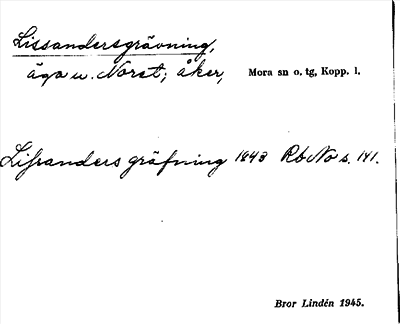 Lissandersgrävning,
äga u. Noret; åker, Mora sn o. tg, Kopp. l.
Lisſanders gräfning 1843 Rb No s. 141.
Bror Lindén 1945.